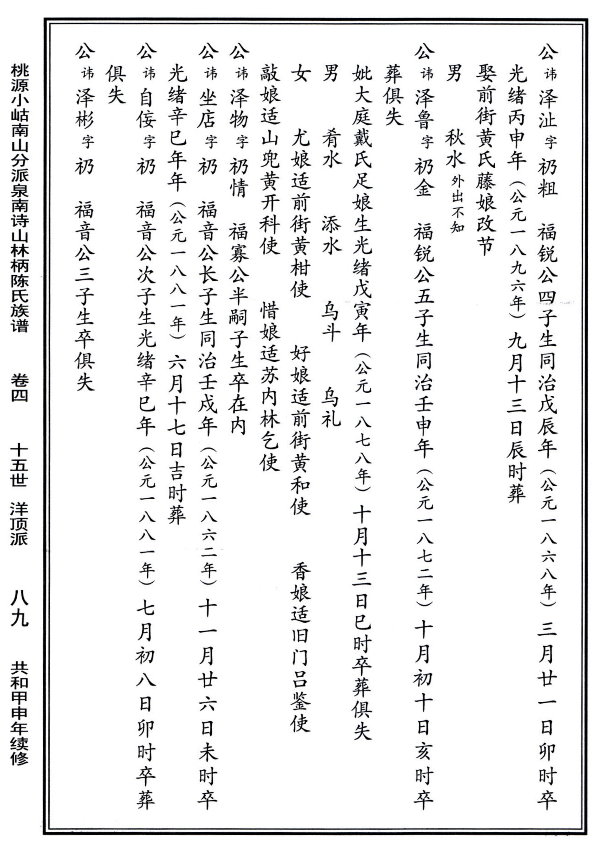 公讳泽沚字礽粗　福锐公四子生同治戊辰年（公元一八六八年）三月廿一日卯时卒
光绪丙申年（公元一八九六年）九月十三日辰时葬
娶前街黄氏藤娘改节
男　秋水外出不知
公讳泽鲁字礽金　福锐公五子生同治壬申年（公元一八七二年）十月初十日亥时卒
葬俱失
妣大庭戴氏足娘生光绪戊寅年（公元一八七八年）十月十三日巳时卒葬俱失
男　肴水　添水　乌斗　乌礼
女　尤娘适前街黄柑使　好娘适前街黄和使　香娘适旧门吕鉴使
敲娘适山兜黄开科使　惜娘适苏内林乞使
公讳泽物字礽情　福寡公半嗣子生卒在内
公讳坐店字礽　福音公长子生同治壬戌年（公元一八六二年）十一月廿六日未时卒
光绪辛巳年年（公元一八八一年）六月十七日吉时葬
公讳自侫字礽　福音公次子生光绪辛巳年（公元一八八一年）七月初八日卯时卒葬
俱失
公讳泽彬字礽　福音公三子生卒俱失
桃源小岵南山分派泉南诗山林柄陈氏族谱　卷四　十五世　洋顶派　八九　共和甲申年续修